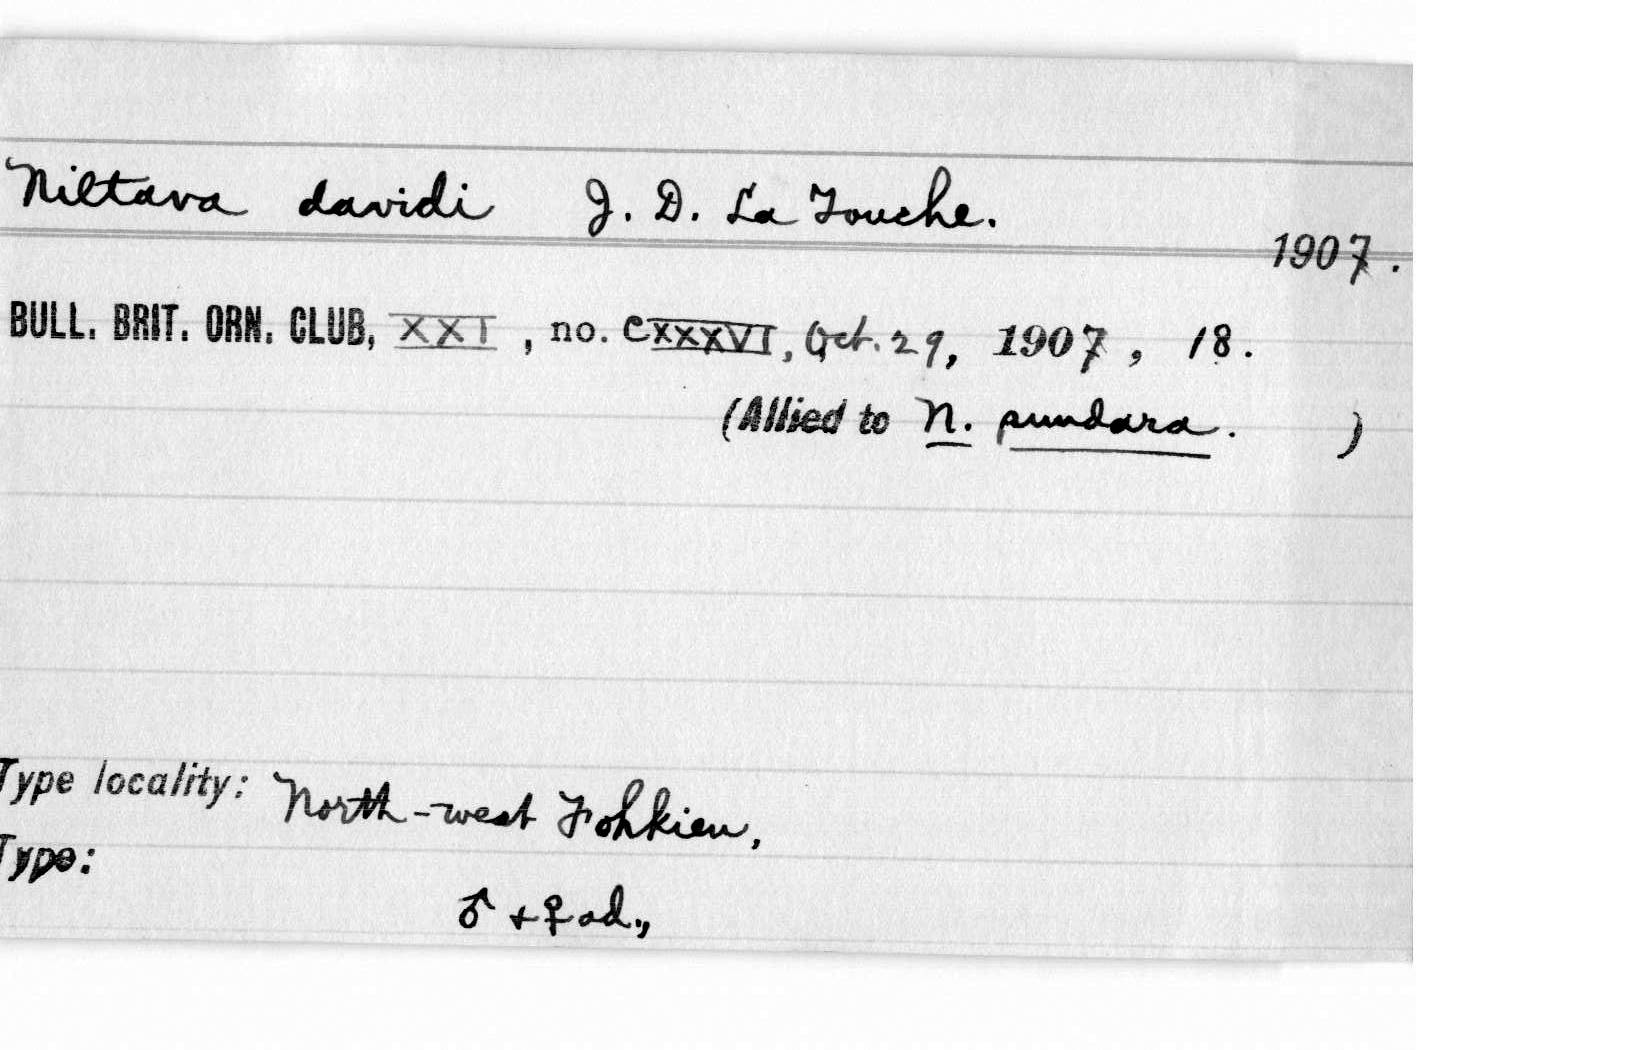 Niltava davidi J. D. La Touche.
1907.
BULL. BRIT. ORN. CLUB, XXI, no. CXXXVI, Oct. 29, 1907, 18.
(Allied to N. sundara. )
Type locality: North-west Fohkien,
Type:
♂ + ♀ ad.,